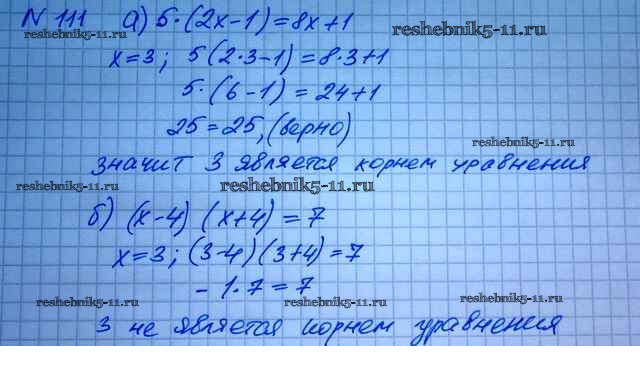 № 111 а) 5·(2x-1)=8x+1
reshebnik5-11.ru reshebnik5-11.ru
x=3; 5(2·3-1)=8·3+1
5·(6-1)=24+1
25=25, (верно)
reshebnik5-11.ru reshebnik5-11.ru
значит 3 является корнем уравнения
reshebnik5-11.ru reshebnik5-11.ru reshebnik5-11.ru
б) (x-4) (x+4)=7
x=3; (3-4)(3+4)=7
-1·7=7
reshebnik5-11.ru reshebnik5-11.ru reshebnik5-11.ru
3 не является корнем уравнения